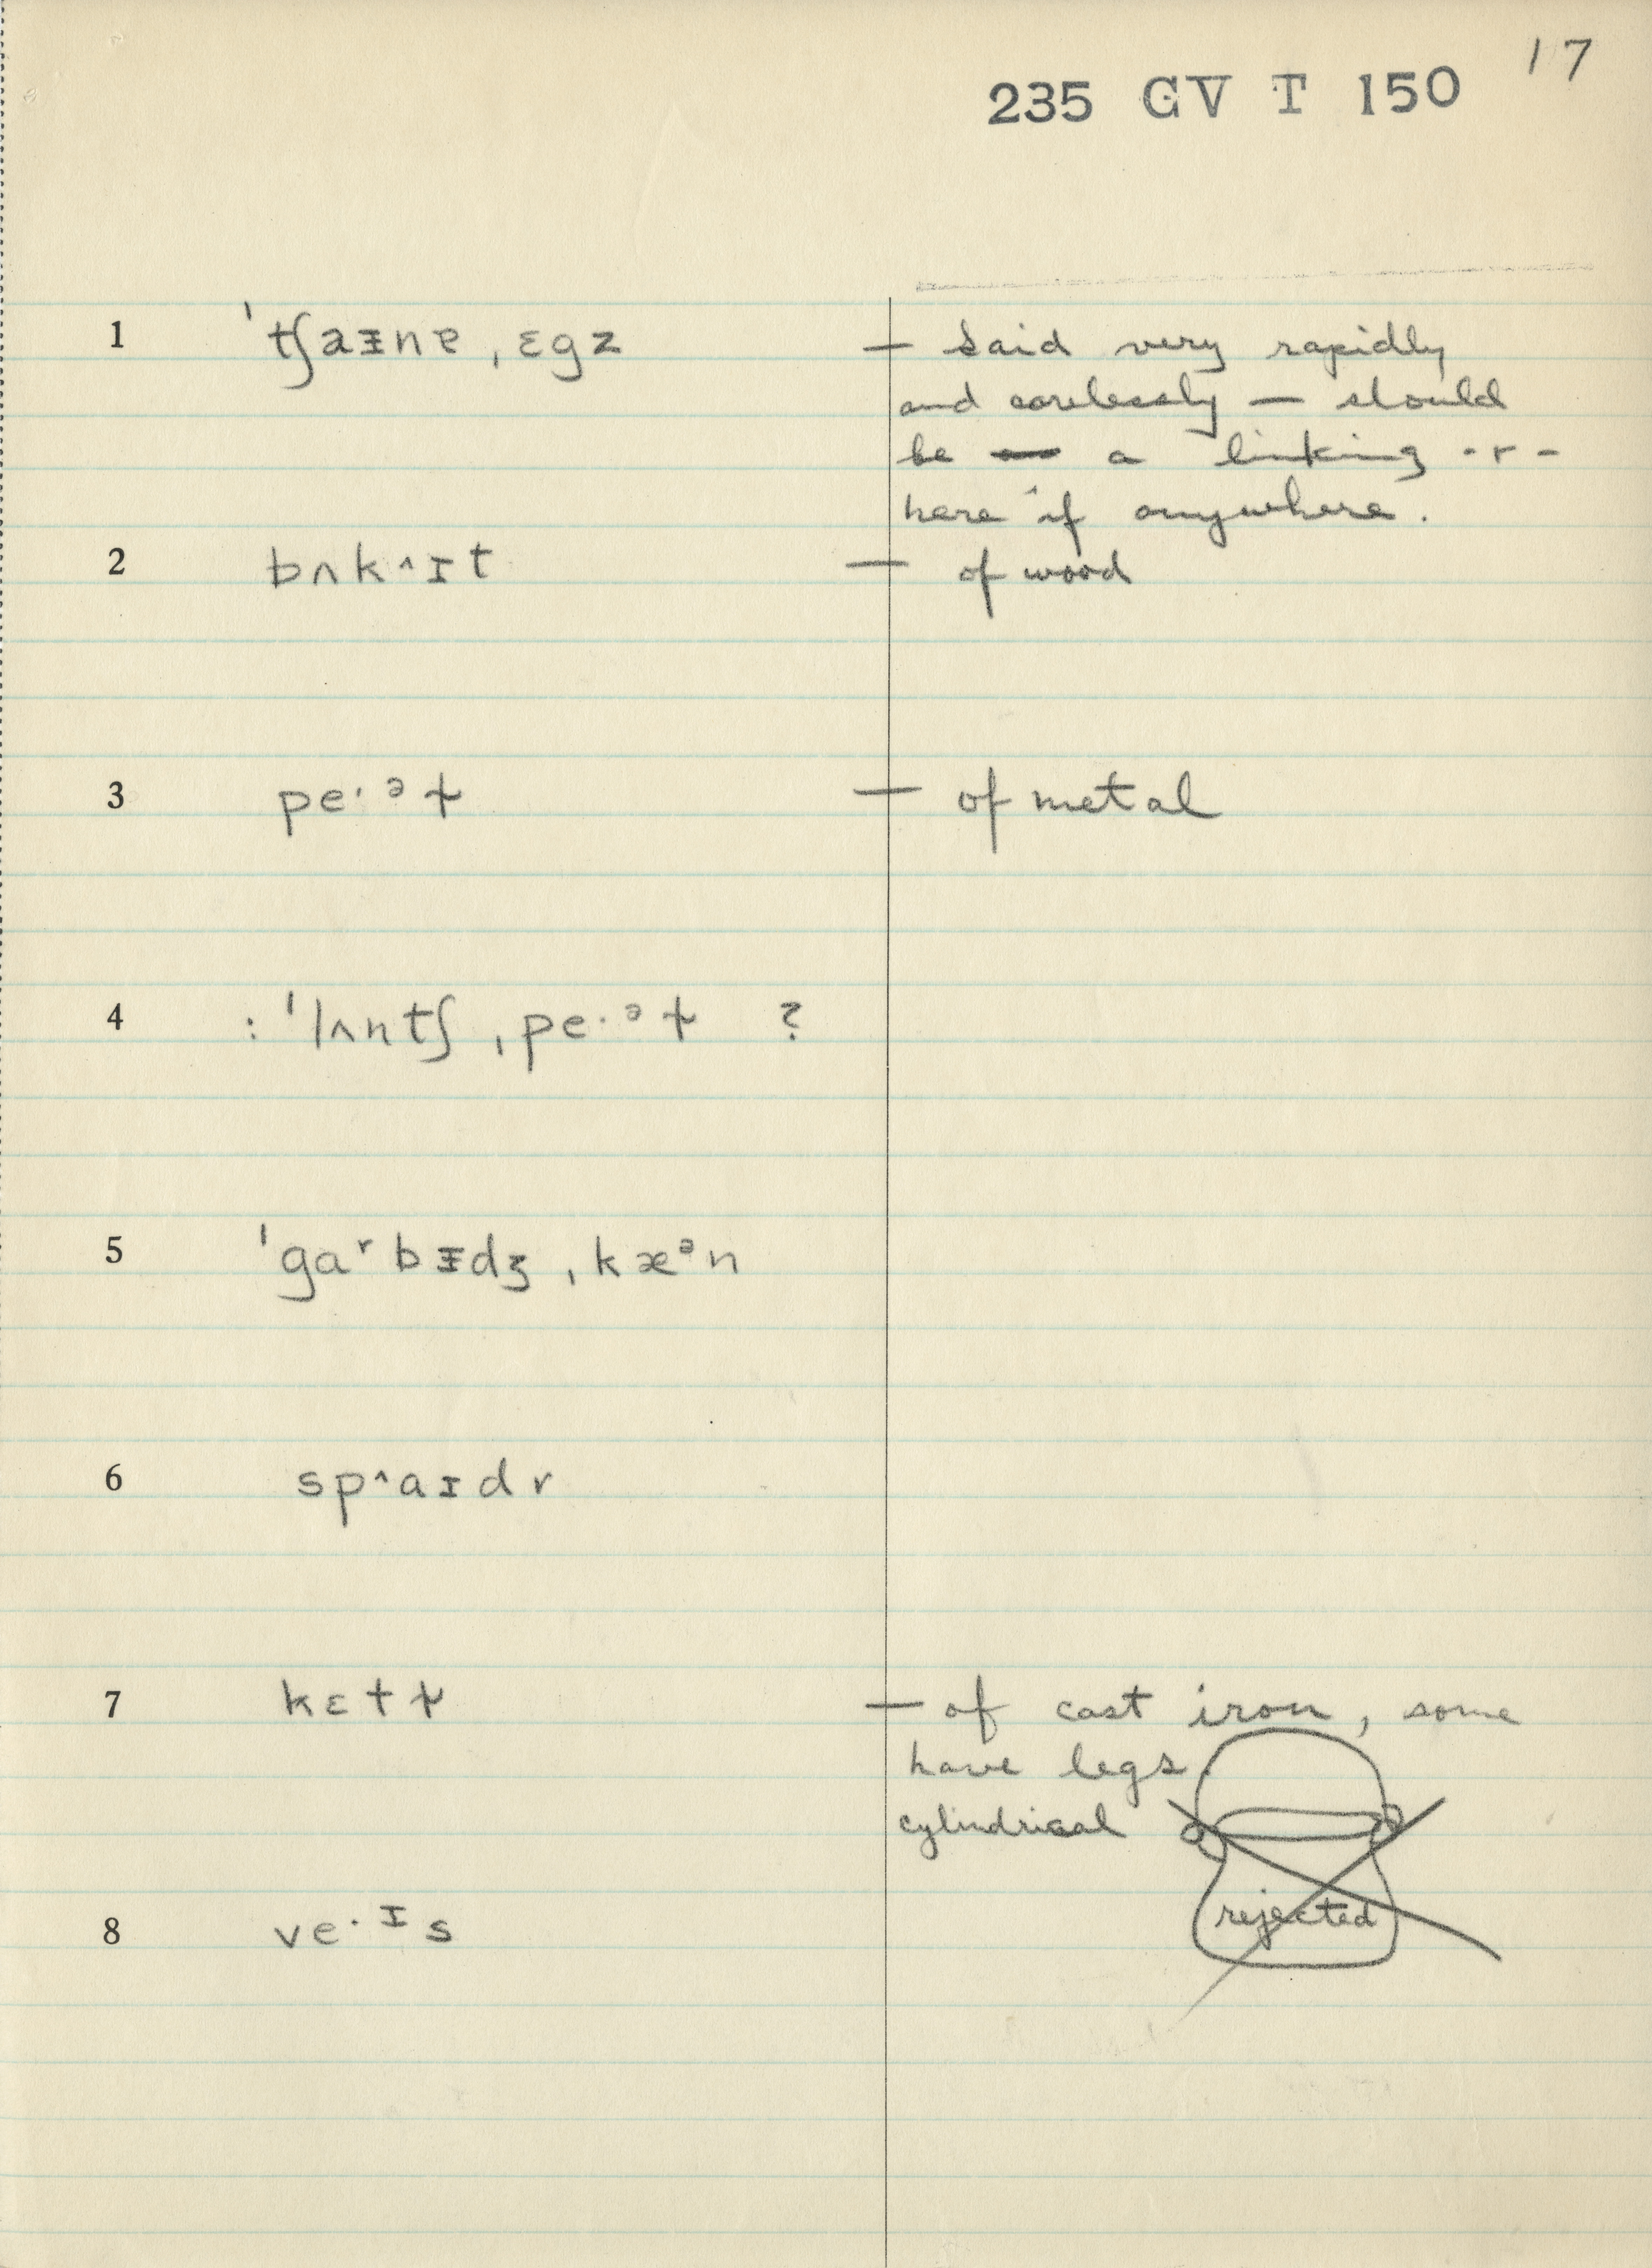 17
235 GV T 150
1 ˈtʃaᵻnɐ ˌɛgz — Said very rapidly
and carelessly — should
be a linking -r-
here if anywhere.
2 bʌk^ɪt — of wood
3 pe·ᵊɫ — of metal
4 : ˈlʌntʃ ˌpe·ᵊɫ ?
5 ˈgaʳbᵻdʒ ˌkæᵊn
6 sp^aɪdr
7 kɛtɫ — of cast iron, some
have legs.
cylindrical
rejected
8 ve·ᶦs